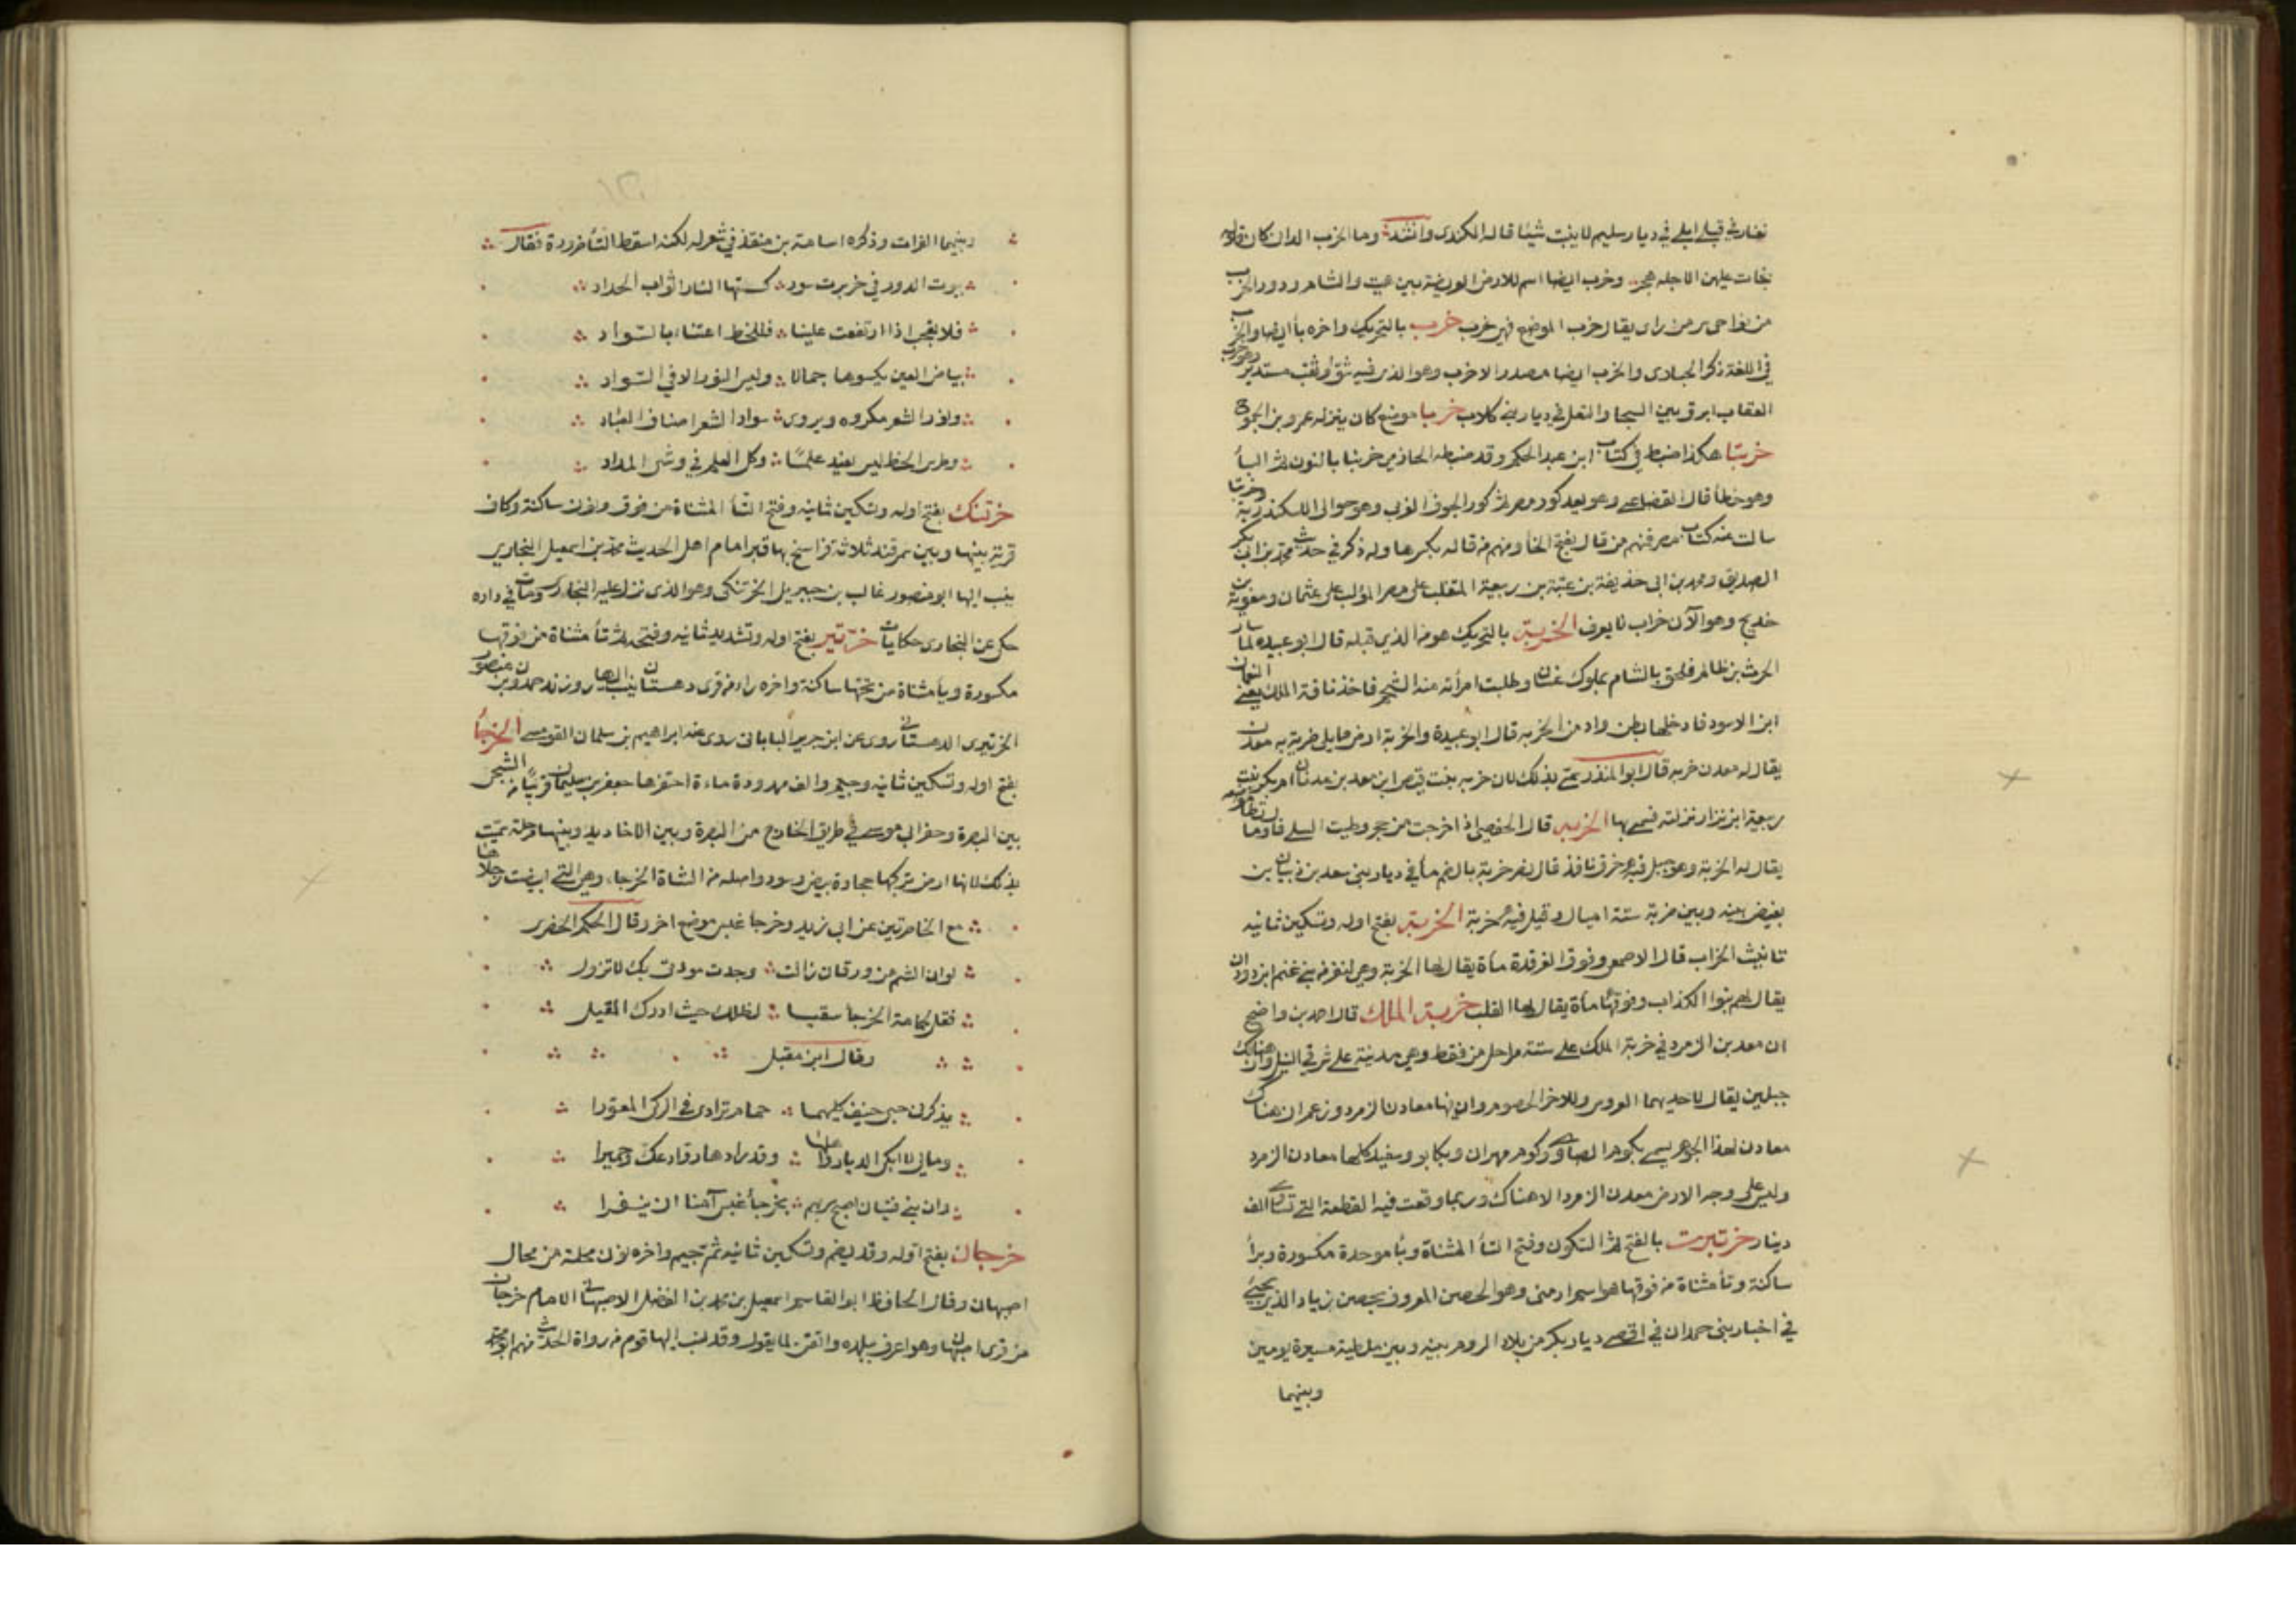 تعار في قبلي ابلي في ديار سليم لا ينبت شيئا قاله الكندي وانشد وما الخرب الدان كان قلاله
بخات عليهن الاجلة هجر وخرب ايضا اسم للارض العريضة بين هيت والشام ودور الخرب
من نواحي سر من راى يقال خرب الموضع فهو خرب خرب بالتحريك واخره باء ايضا والخرب
في اللغة ذكر الحبارى والخرب ايضا مصدر الاخرب وهو الذي فيه شق او ثقب مستدير وهو خرب
العقاب ابرق بين السجا والثعل في ديار بني كلاب خربا موضع كان ينزله عمرو بن الجموح
خربتا هكذا ضبط في كتاب ابن عبد الحكم وقد ضبطه الحازمي خرنبا بالنون ثم الباء
وهو خطأ قال القضاعي وهو يعد كور مصر ثم كور الحوف الغربي وهو حوالى الاسكندرية وخربتا
سالت عنه كتاب مصر فمنهم من قال بفتح الخا ومنهم من قاله بكسرها وله ذكر في حديث محمد بن ابي بكر
الصديق ومحمد بن ابي حذيفة بن عتبة بن ربيعة المتغلب على مصر المؤلب على عثمان ومعوية بن
خديج وهو الآن خراب لا يعرف الخربة بالتحريك هو من الذي قبله قال ابو عبيدة لما سار
الحرث بن ظالم فلحق بالشام بملوك غسان وطلبت امرأته منه الشحم فاخذ ناقة الملك يعني النعمان
ابن الاسود فادخلها بطن واد من الخربة قال ابو عبيدة والخربة ارض مما يلي ضرية به معدن
يقال له معدن خربه قال ابو المنذر سمي بذلك لان خربه بنت قنص ابن معد بن عدنان ام بكر بنت
ربيعة ابن نزار نزلته فسمي بها الخربه قال الحفصي اذا خرجت من حجر وطيت السلي فاول ما تطا
يقال له الخربة وهو جبل فيه خرق نافذ قال نصر خربة بالضم ماء في ديار بني سعد بن ذبيان بن
بغيض بينه وبين ضرية ستة اميال وقيل فيه خربة الخربة بفتح اوله وتسكين ثانيه
تانيث الخراب قال الاصمعي وفوق الغرقدة ماءة يقال لها الخربة وهي لنفر من بني غنم ابن دودان
يقال لهم بنوا الكذاب وفوقها ماءة يقال لها القليب خربة الملك قال احمد بن واضح
ان معدن الزمرد في خربة الملك على ستة مراحل من قفط وهي مدينة على شرقي النيل وان هنالك
جبلين يقال لاحديهما العروس وللاخر الخصوم وان بها معادن الزمرد وزعم ان هناك
معادن لهذا الجوهر يسمى بكوم الصاوي وكوم مهران وبكابو وسفيد كلها معادن الزمرد
وليس على وجه الارض معدن الزمرد الا هناك وربما وقعت فيه القطعة التي تساوي الف
دينار خرتبرت بالفتح ثم السكون وفتح التاء المثناة وباء موحدة مكسورة وراء
ساكنة وتاء مثناة من فوقها هو اسم ارمني وهو الحصن المعروف بحصن زياد الذي يجيء
في اخبار بني حمدان في اقصى ديار بكر من بلاد الروم بينه وبين ملطية مسيرة يومين
وبينهما
وبينهما الفرات وذكره اسامة بن منقذ في شعر له لكنه اسقط التاء ضرورة فقال
بيوت الدور في خربرت سود كستها النار اثواب الحداد
فلا تعجب اذا ارتفعت علينا فللحظ اعتناء بالسواد
بياض العين يكسوها جمالا وليس النور الا في السواد
ونور الشعر مكروه ويروى سواد الشعر اصناف العباد
وطرس الخط ليس يفيد علما وكل العلم في وشي المداد
خرتنك بفتح اوله وتسكين ثانيه وفتح التاء المثناة من فوق ونون ساكنة وكاف
قرية بينها وبين سمرقند ثلاثة فراسخ بها قبر امام اهل الحديث محمد بن اسمعيل البخاري
ينسب اليها ابو منصور غالب بن جبريل الخرتنكي وهو الذي نزل عليه البخاري ومات في داره
حكى عن البخاري حكايات خرتير بفتح اوله وتشديد ثانيه وفتحه ثم تاء مثناة من فوقها
مكسورة وياء مثناة من تحتها ساكنة واخره راء من قرى دهستان ينسب اليها روزند حمدون بن منصور
الخرتيري الدهستاني روى عن ابن جرير الباباني روى عنه ابراهيم بن سلمان القومسي الخرجاء
بفتح اوله وتسكين ثانيه وجيم والف ممدودة ماءة احتفرها جعفر بن سليمان قريبا من الشجى
بين البصرة وحفر ابي موسى في طريق الحاج من البصرة وبين الاخاديد وبينها مرحلة سميت
بذلك لانها ارض تركبها حجارة بيض وسود واصله من الشاة الخرجاء وهي التي ابيضت رجلاها
مع الخاصرتين عن ابي زيد وخرجاء عبس موضع اخر وقال الحكم الخضري
لو ان الشم من ورقان زالت وجدت مودتي بك لا تزول
فقل لحمامة الخرجاء سقيا لظلك حيث ادرك المقيل
وقال ابن مقبل
يذكرن حيي حنيف كليهما حمام ترادى في الركي المعورا
وما لي لا ابكي الديار واهلها وقد رادها رواد عك وحميرا
وان بني فتيان اصبح سربهم بخرجاء عبس آمنا ان ينفرا
خرجان بفتح اوله وقد يضم وتسكين ثانيه ثم جيم واخره نون محلة من محال
اصبهان وقال الحافظ ابو القاسم اسمعيل بن محمد بن الفضل الاصبهاني الامام خرجان
من قرى اصبهان وهو اعرف ببلده واتقن لما يقول وقد نسب اليها قوم من رواة الحديث منهم ابو محمد